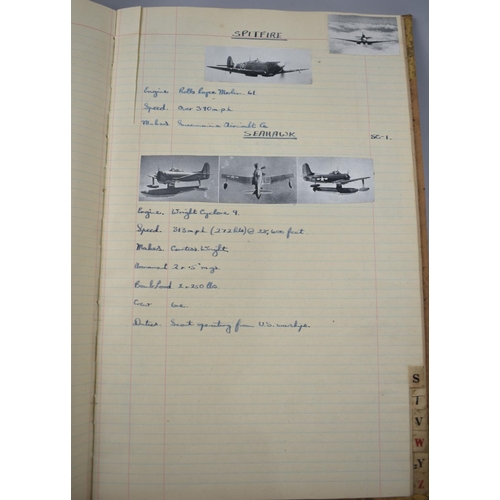 SPITFIRE
Engine. Rolls Royce Merlin 61
Speed. Over 390 mph
Makers Supermarine Aircraft Co
SEAHAWK SC-1.
Engine. Wright Cyclone 9.
Speed. 313 mph (272 kts) @ 28,600 feet
Makers Curtiss Wright.
Armament 2 x .5" m.gs
Bomb Load 2 x 250 lbs.
Crew one
Duties. Scout operating from U.S. warships.
S
T
V
W
Y
Z